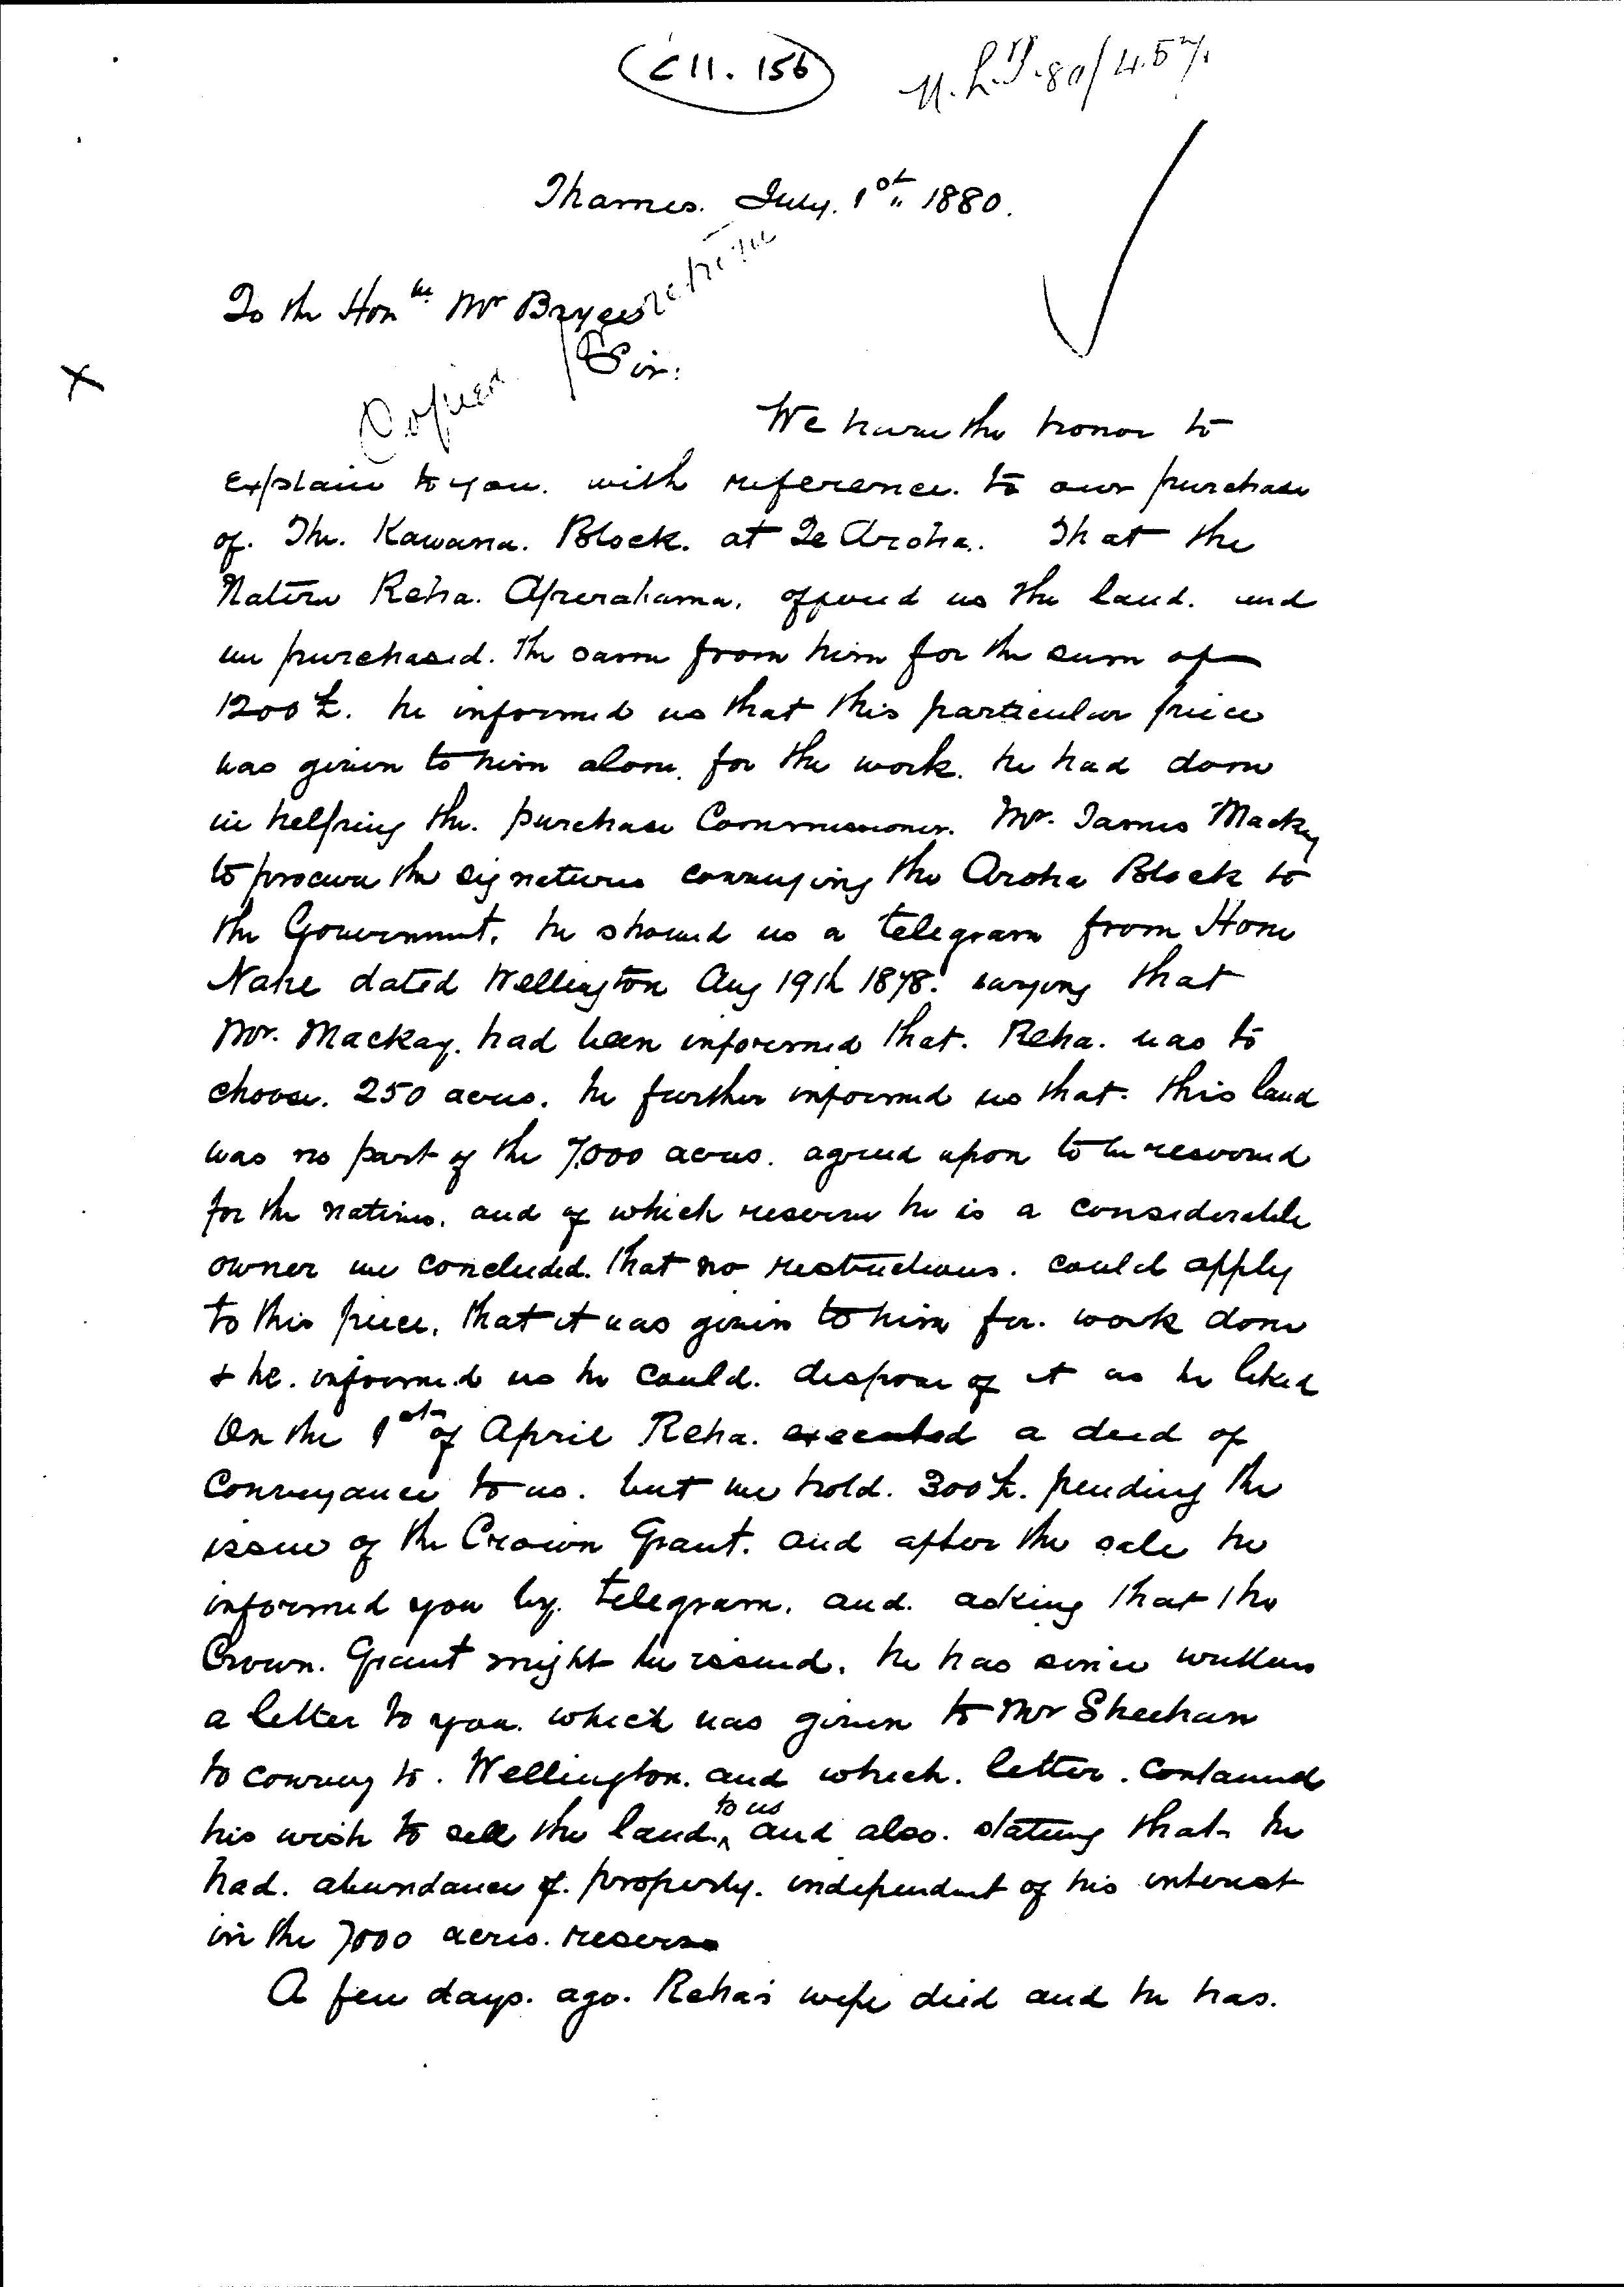 C 11. 156
N. L. P. 80/457
Thames. July. 1st " 1880.
To the Honble Mr Bryce
Sir:
Copied
We have the honor to
explain to you. with reference. to our purchase
of. The. Kawana. Block. at Te Aroha.. That the
Native Reha. Aperahama. offered us the land. and
we purchased. the same from him for the sum of
1200£. he informed us that this particular piece
was given to him alone. for the work. he had done
in helping the. purchase Commissioner. Mr. James Mackay
to procure the signatures conveying the Aroha Block to
the Government. he showed us a telegram from Hone
Nahe dated Wellington Aug 19th 1878. saying that
Mr. Mackay. had been informed that. Reha. was to
choose. 250 acres. he further informed us that. this land
was no part of the 7,000 acres. agreed upon to be reserved
for the natives. and of which reserve he is a considerable
owner we concluded. that no restrictions. could apply
to this piece. that it was given to him for. work done
& he. informed us he could. dispose of it as he liked
On the 1st of April Reha. executed a deed of
Conveyance to us. but we hold. 300£. pending the
issue of the Crown Grant. and after the sale he
informed you by. telegram. and. asking that the
Crown. Grant might be issued. he has since written
a letter to you. which was given to Mr Sheehan
to convey to. Wellington. and which. letter. contained
to us
his wish to sell the land.^ and also. stating that he
had. abundance of. property. independent of his interest
in the 7000 acres. reserve
A few days. ago. Reha's wife died and he has.